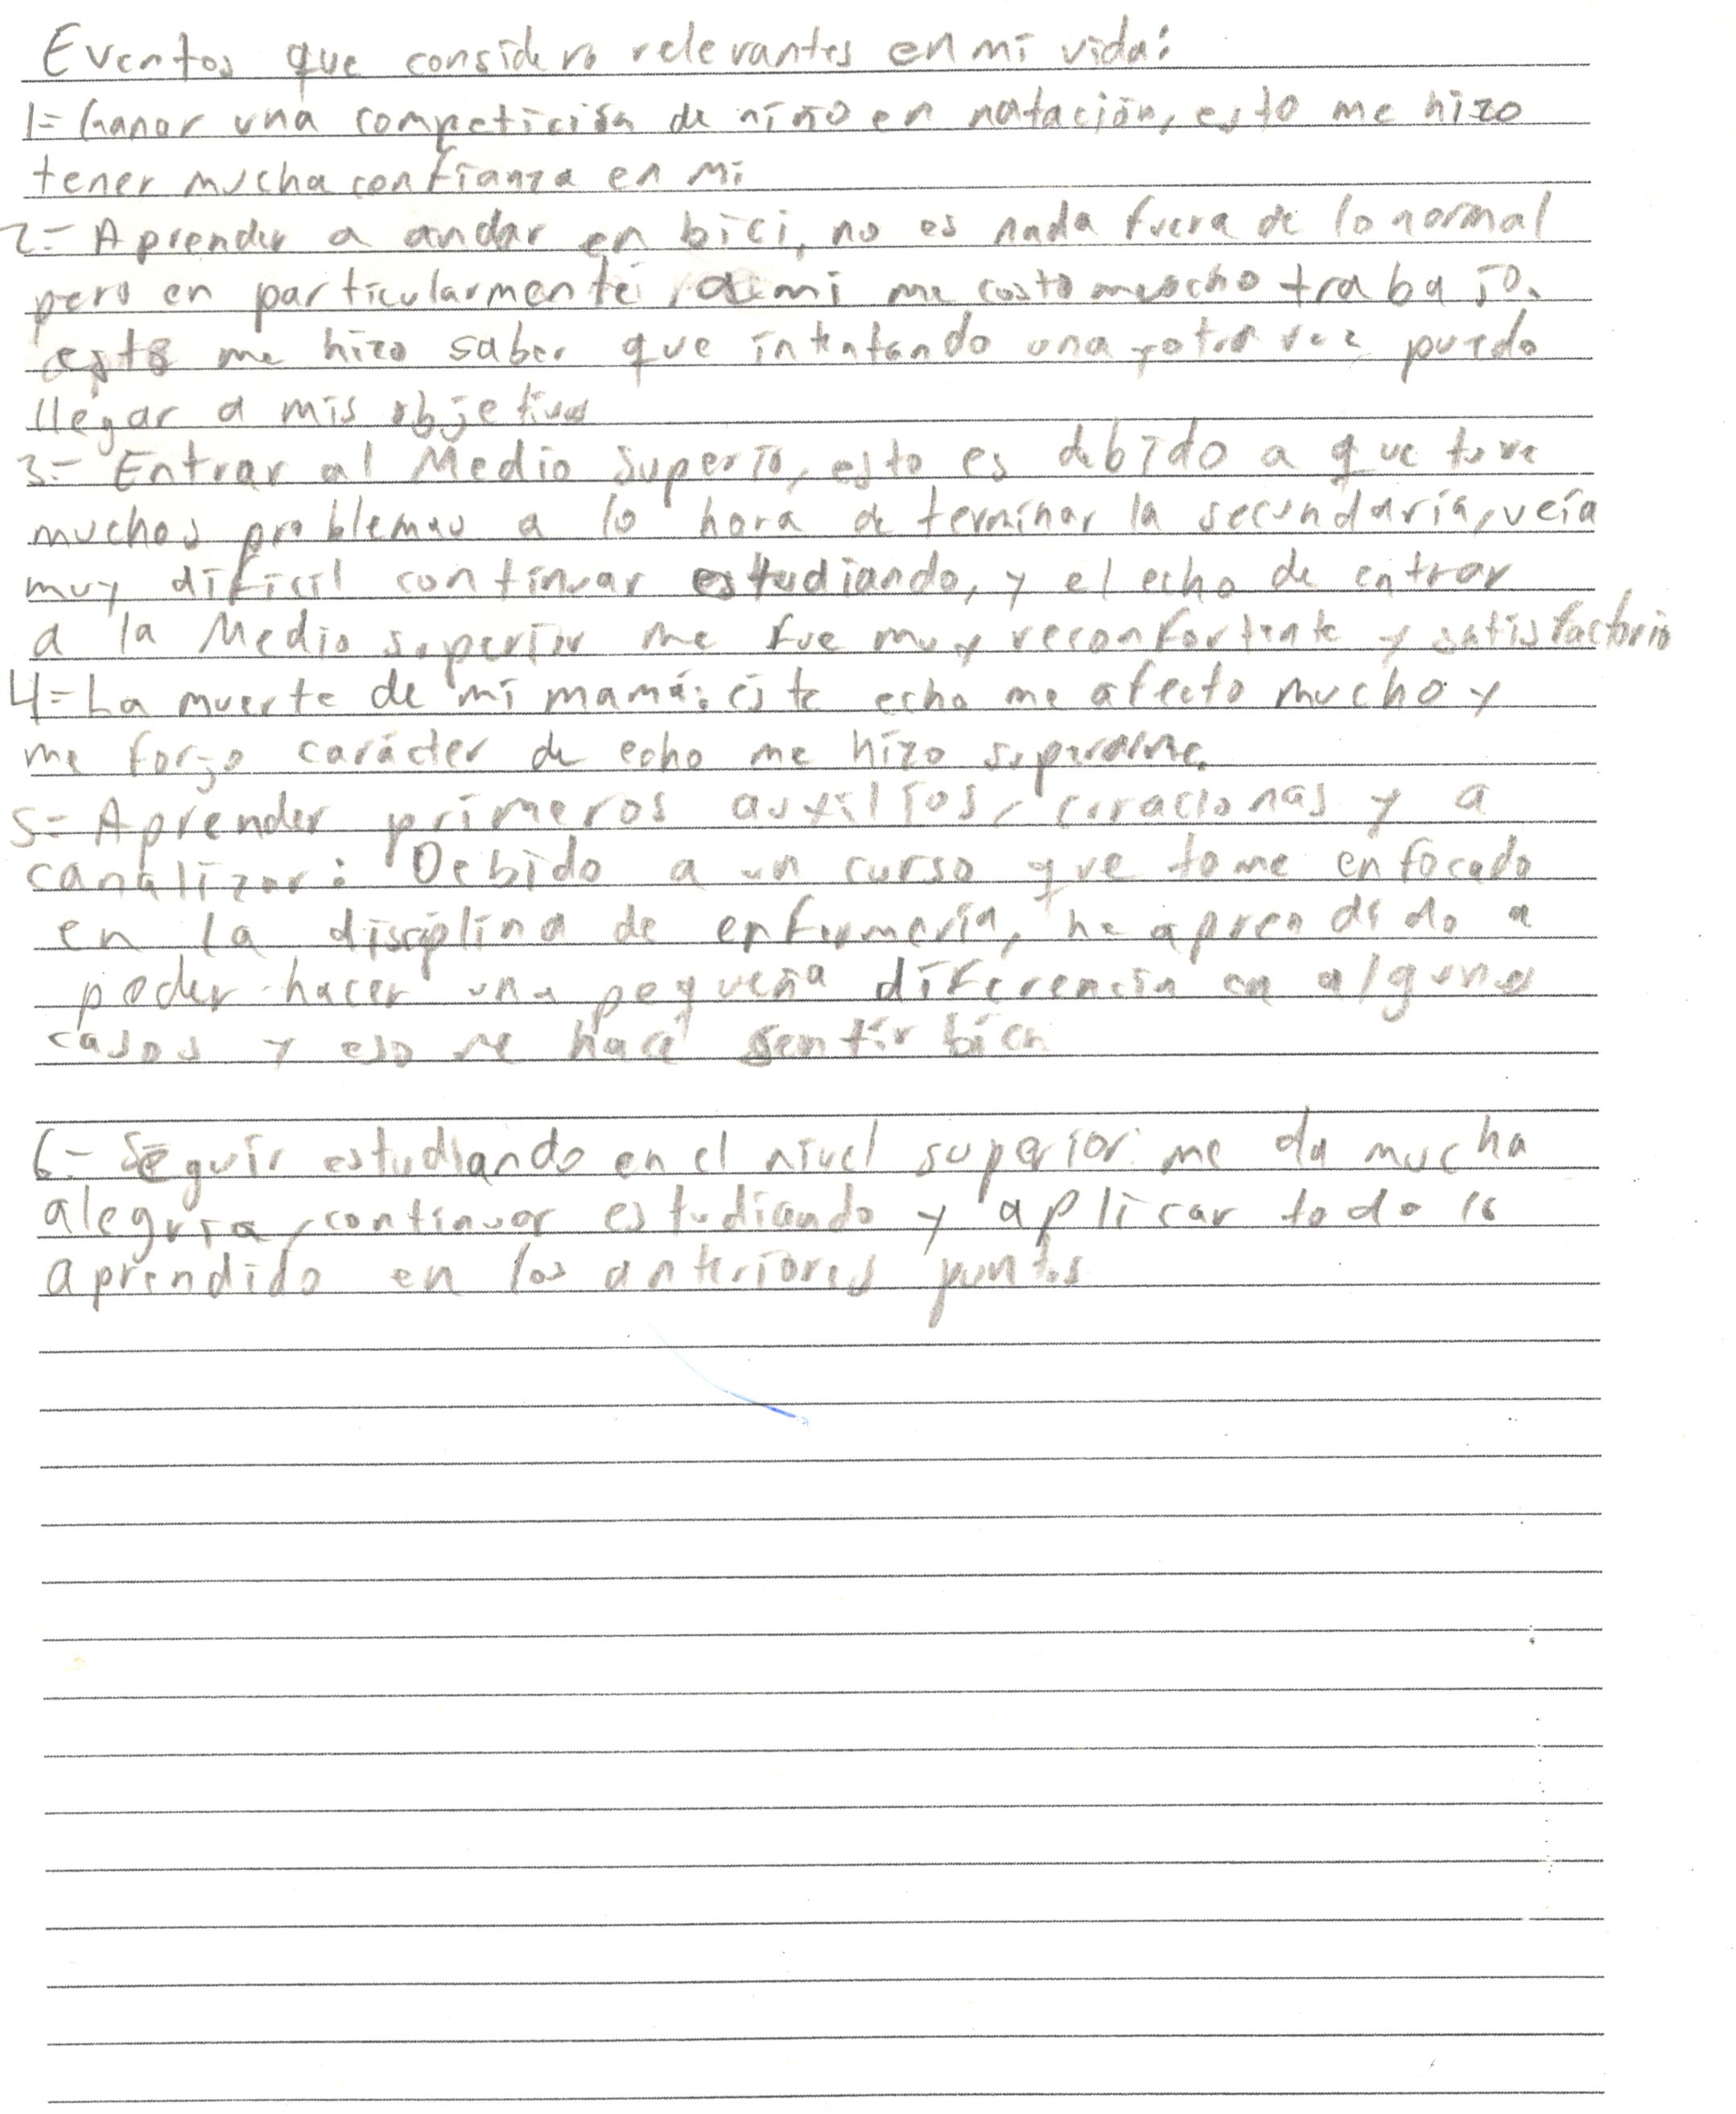 Eventos que considero relevantes en mi vida:
1= Ganar una competición de niño en natación, esto me hizo
tener mucha confianza en mi
2= Aprender a andar en bici, no es nada fuera de lo normal
pero en particularmente, a mi me costo muscho trabajo.
esto me hizo saber que intentando una y otra vez puedo
llegar a mis objetivos
3= Entrar al Medio Superio, esto es debido a que tuve
muchos problemas a lo hora de terminar la secundaria, veía
muy dificil continuar estudiando, y el echo de entrar
a la Medio superior me fue muy reconfortante y satisfactorio
4= La muerte de mi mamá: este echo me afecto mucho y
me forjo carácter de echo me hizo superarme.
5= Aprender primeros auxilios, curacionas y a
canalizar: Debido a un curso que tome enfocado
en la disciplina de enfermería, he aprendido a
poder hacer una pequeña diferencia en algunos
casos y eso me hace sentir bien
6= Seguir estudiando en el nivel superior: me da mucha
alegria, continuar estudiando y aplicar todo lo
aprendido en los anteriores puntos